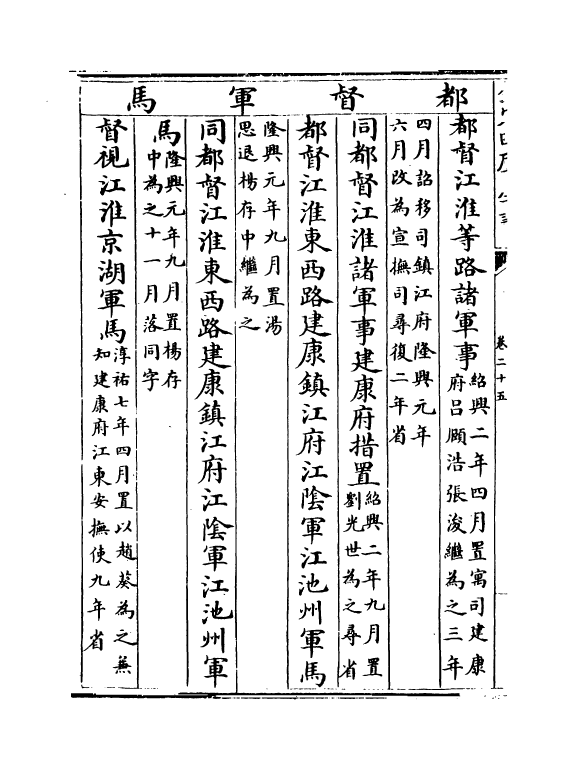 都督軍馬
卷二十五
都督江淮等路諸軍事紹興二年四月置寓司建康
府呂頤浩張浚繼為之三年
四月詔移司鎮江府隆興元年
六月改為宣撫司尋復二年省
同都督江淮諸軍事建康府措置紹興二年九月置
劉光世為之尋省
都督江淮東西路建康鎮江府江隂軍江池州軍馬
隆興元年九月置湯
思退楊存中繼為之
同都督江淮東西路建康鎮江府江隂軍江池州軍
馬隆興元年九月置楊存
中為之十一月落同字
督視江淮京湖軍馬淳祐七年四月置以趙葵為之兼
知建康府江東安撫使九年省